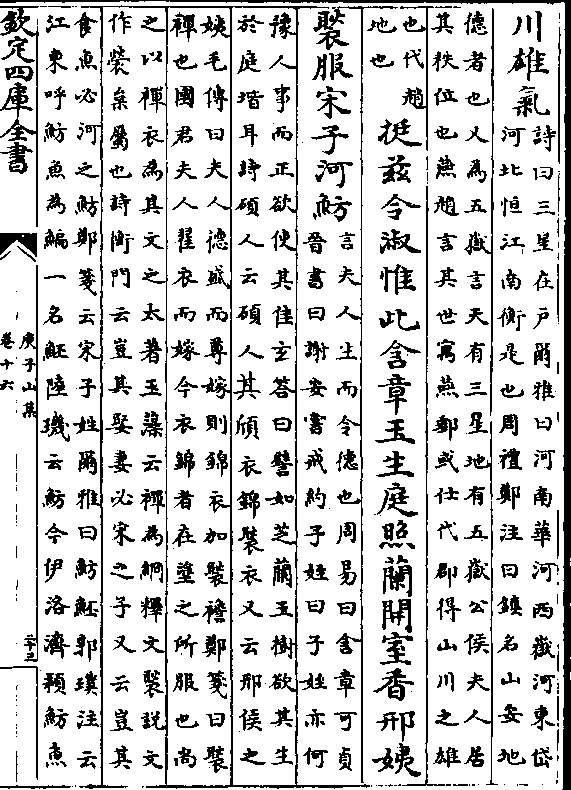 川雄氣
詩曰三星在戶爾雅曰河南華河西嶽河東岱
河北恒江南衡是也周禮鄭注曰鎮名山安地
德者也又為五嶽言天有三星地有五嶽公侯夫人居
其秩位也燕趙言其世寓燕鄭或仕代郡得山川之雄
也代趙
地也
挺茲令淑惟此含章玉生庭照蘭開室香邢姨
褧服宋子河魴
言夫人生而令德也周易曰含章可貞
晉書曰謝安嘗戒約子姪曰子姪亦何
豫人事而正欲使其佳玄答曰譬如芝蘭玉樹欲其生
於庭堦耳詩碩人云碩人其頎衣錦褧衣又云邢侯之
姨毛傳曰夫人德盛而尊嫁則錦衣加褧襜鄭箋曰褧
襌也國君夫人翟衣而嫁今衣錦者在塗之所服也尚
之以襌衣為其文之太著玉藻云襌為絅釋文褧説文
作檾枲屬也詩衡門云豈其娶妻必宋之子又云豈其
食魚必河之魴鄭箋云宋子姓爾雅曰魴魾郭璞注云
江東呼魴魚為鯿一名魾陸璣云魴今伊洛濟潁魴魚
欽定四庫全書
庾子山集
卷十六
二十三